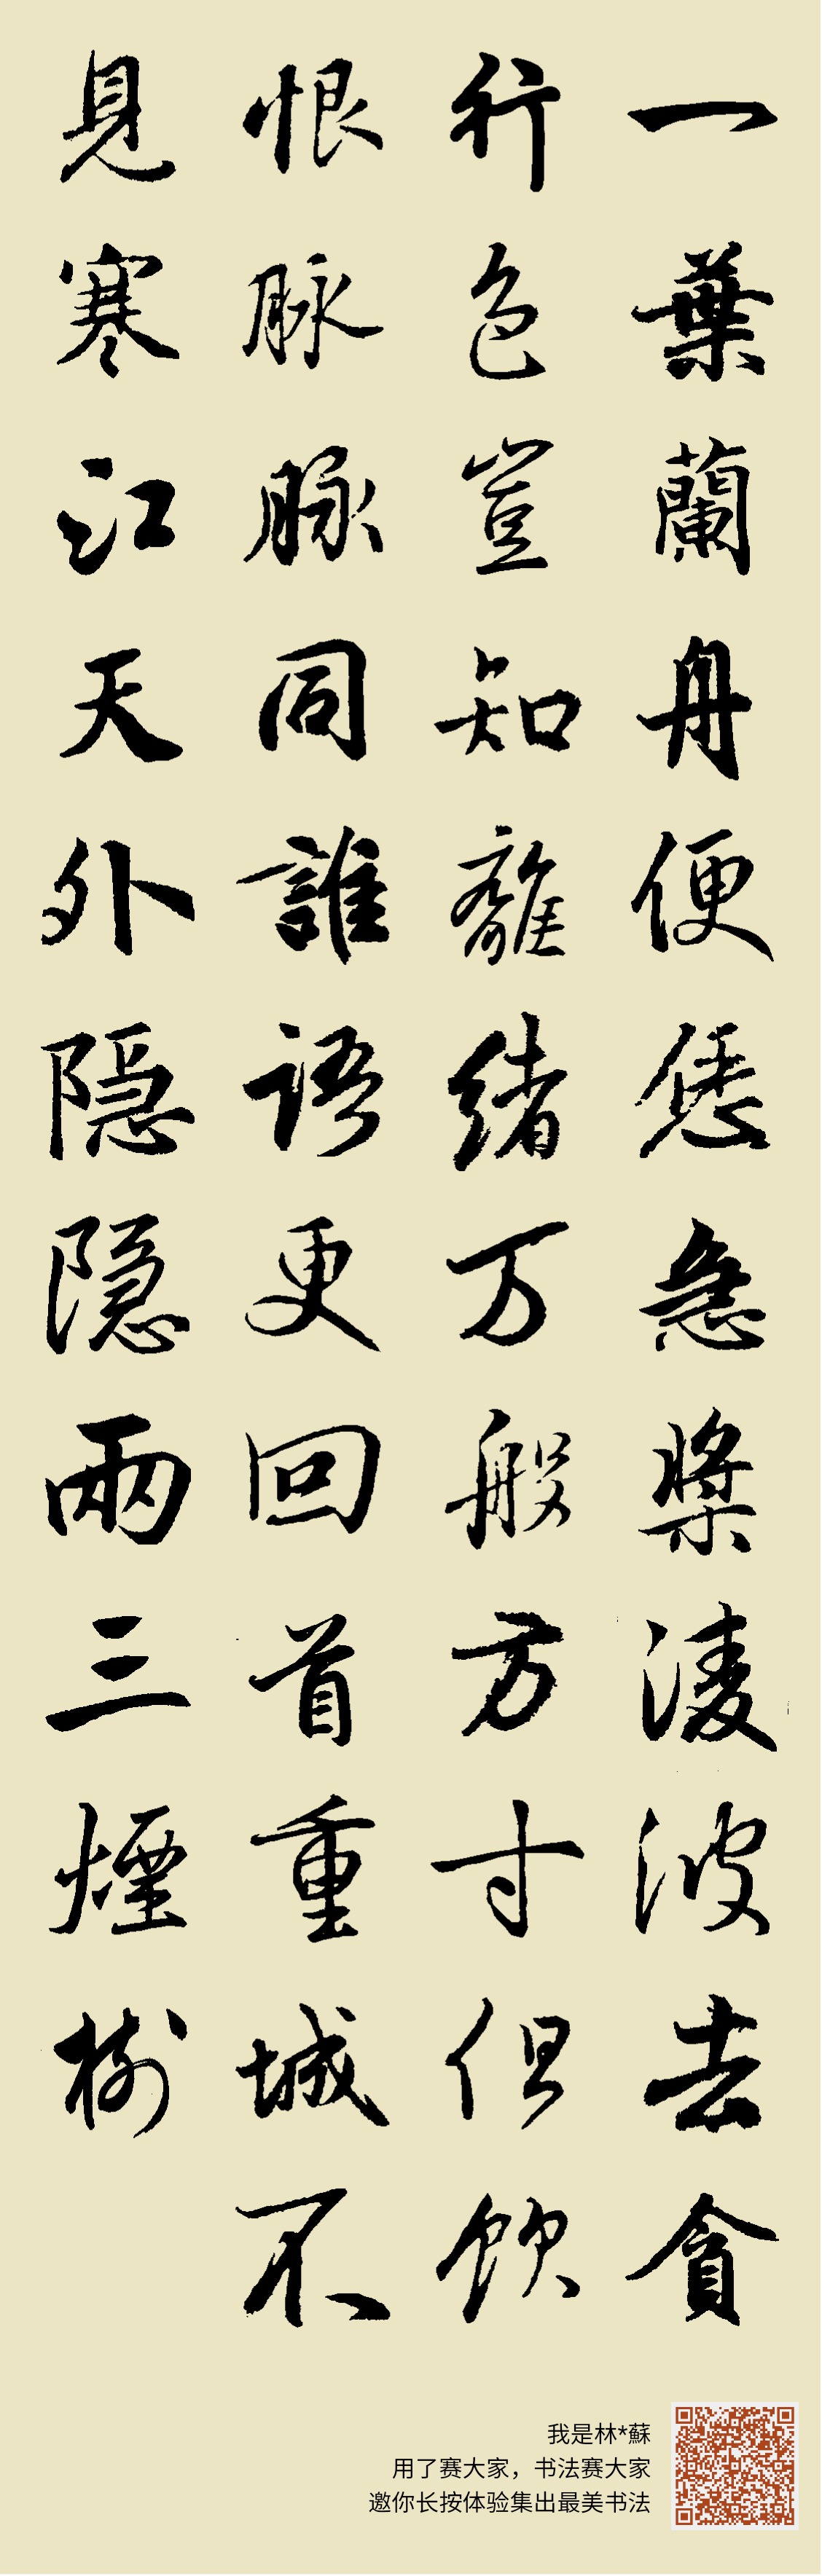 一葉蘭舟便恁急槳淩波去貪
行色豈知離緒万般方寸但飲
恨脉脉同誰語更回首重城不
見寒江天外隱隱兩三煙樹
我是林*蘇
用了赛大家，书法赛大家
邀你长按体验集出最美书法